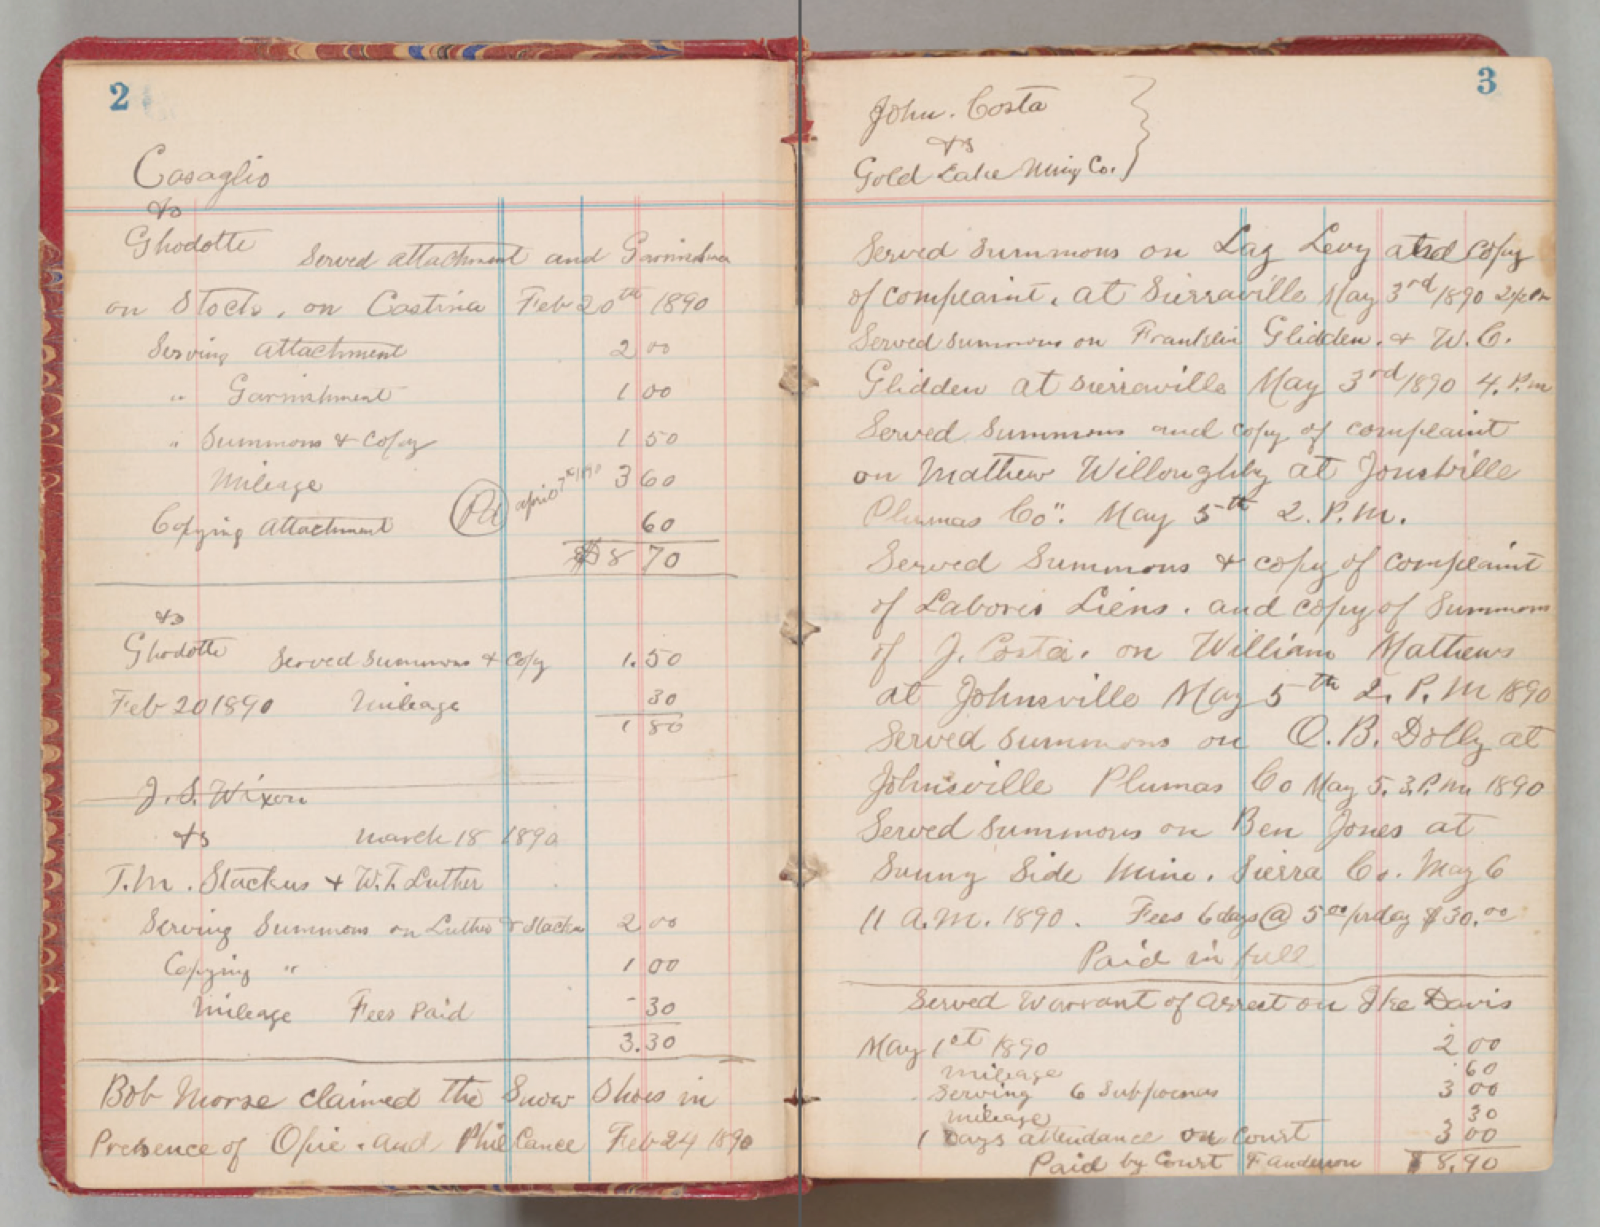 2
Casaglio
vs
Ghodotte Served attachment and Garnishm
on Stock, on Castina Feb 20th 1890
Serving attachment 2 00
" Garnishment 1 00
" Summons & Copy 1 50
Mileage 3 60
Pd april 7th 1890
Copying attachment 60
$8 70
vs
Ghodotte Served Summons & Copy 1.50
Feb 20 1890 Mileage 30
1 80
J. S. Wixon
vs March 18 1890
T. M. Stackus & W. T. Luther
Serving Summons on Luther & Stackus 2 00
Copying " 1 00
Mileage Fees Paid - 30
3.30
Bob Morse claimed the Snow Shoes in
Presence of Opie. and Phil Cance Feb 24 1890
3
John. Costa
vs
Gold Lake Ming Co.
Served Summons on Laz Levy and Copy
of complaint, at Sierraville May 3rd 1890
Served Summons on Franklin Glidden. & W. C.
Glidden at Sierraville May 3rd/1890 4. P.m
Served Summons and copy of complaint
on Mathew Willoughby at Jonsville
Plumas Co". May 5th 2. P.M.
Served Summons & copy of complaint
of Labores Liens. and copy of Summons
of J. Costa. on William Mathews
at Johnsville May 5th 2. P. M 1890
Served Summons on O. B. Dolly at
Johnsville Plumas Co May 5. 3. P.m 1890
Served Summons on Ben Jones at
Sunny Side Mine. Sierra Co. May 6
11 A.M. 1890. Fees 6 days @ 5 00/pr day $30.00
Paid in full
Served Warrant of Arrest on Ike Davis
May 1st 1890 2 00
Mileage .60
Serving 6 Subpoenas 3 00
Mileage 30
1 Days attendance on Court 3 00
Paid by Court F Anderson $8.90